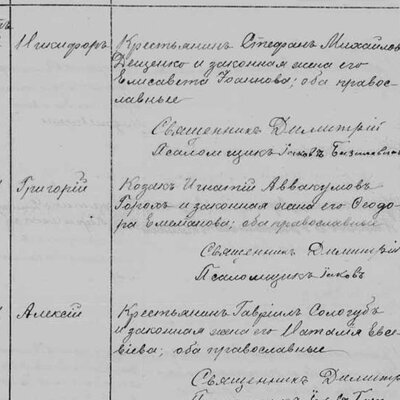 Никифоръ
Крестьянинъ Стефанъ Михайлов
Дещенко и законная жена его
Елисавета Іоаннова; оба право-
славные
Священникъ Димитрій
Псаломщикъ Іаковъ
Григорій
Козакъ Игнатій Аввакумовъ
и законная жена его Ѳеодо-
ра Емелианова; оба православные
Священникъ Димитрій
Псаломщикъ Іаковъ
Алексій
Крестьянинъ Гавріилъ Сологубъ
и законная жена его Наталія Евсе-
віева; оба православные
Священникъ Димитр